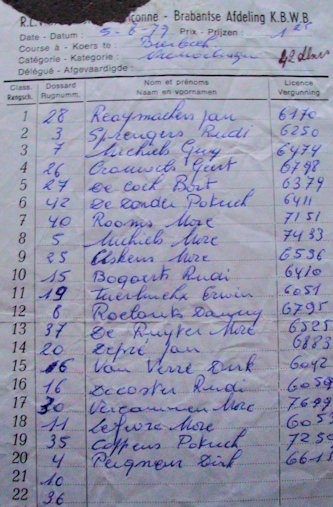 R.L.V. - Brabantse Afdeling K.B.W.B.
Date - Datum : 5-6-77 Prix - Prijzen : 1
Course à - Koers te : Bierbeek
Catégorie - Kategorie : Nieuwelingen 42 dlnrs
Délégué - Afgevaardigde :
Class. Rangsch. Dossard Rugnumm. Nom et prénoms Naam en voornamen Licence Vergunning
1 28 Raeymaekers Jan 6170
2 3 Sprengers Rudi 6250
3 7 Michiels Guy 6474
4 26 Gert 6798
5 27 De Cock Bart 6379
6 42 De Donder Patrick 6411
7 40 Rooms Marc 7151
8 5 Michiels Marc 7433
9 25 Marc 6536
10 15 Bogaerts Rudi 6410
11 19 Erwin 6051
12 6 Roelants Danny 6795
13 37 De Ruyter Marc 6525
14 20 Depré Jan 6883
15 Van Dirk 6042
16 16 Decoster Rudi 6059
17 30 Vercammen Marc 7699
18 11 Marc
19 35 Coppens Patrick 7254
20 4 Dirk
21 10
22 36